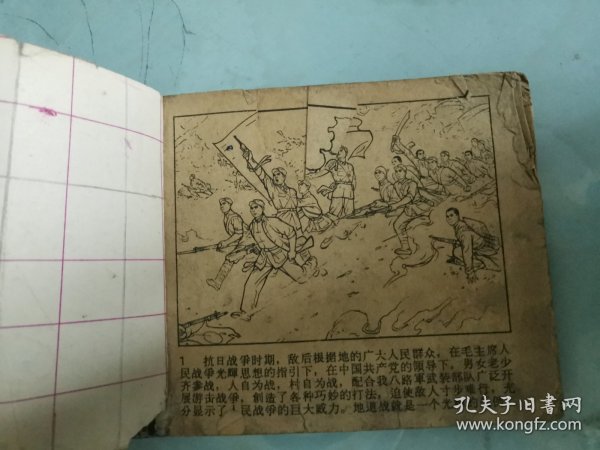 1 抗日战争时期，敌后根据地的广大人民群众，在毛主席人
民战争光輝思想的指引下，在中国共产党的領导下，男女老少
齐参战，人自为战，村自为战，配合我八路軍武装部队广泛开
展游击战争，創造了各种巧妙的打法，迫使敌人寸步难行，充
分显示了 民战争的巨大威力。地道战就是一个光
孔夫子旧书网
www.kongfz.com